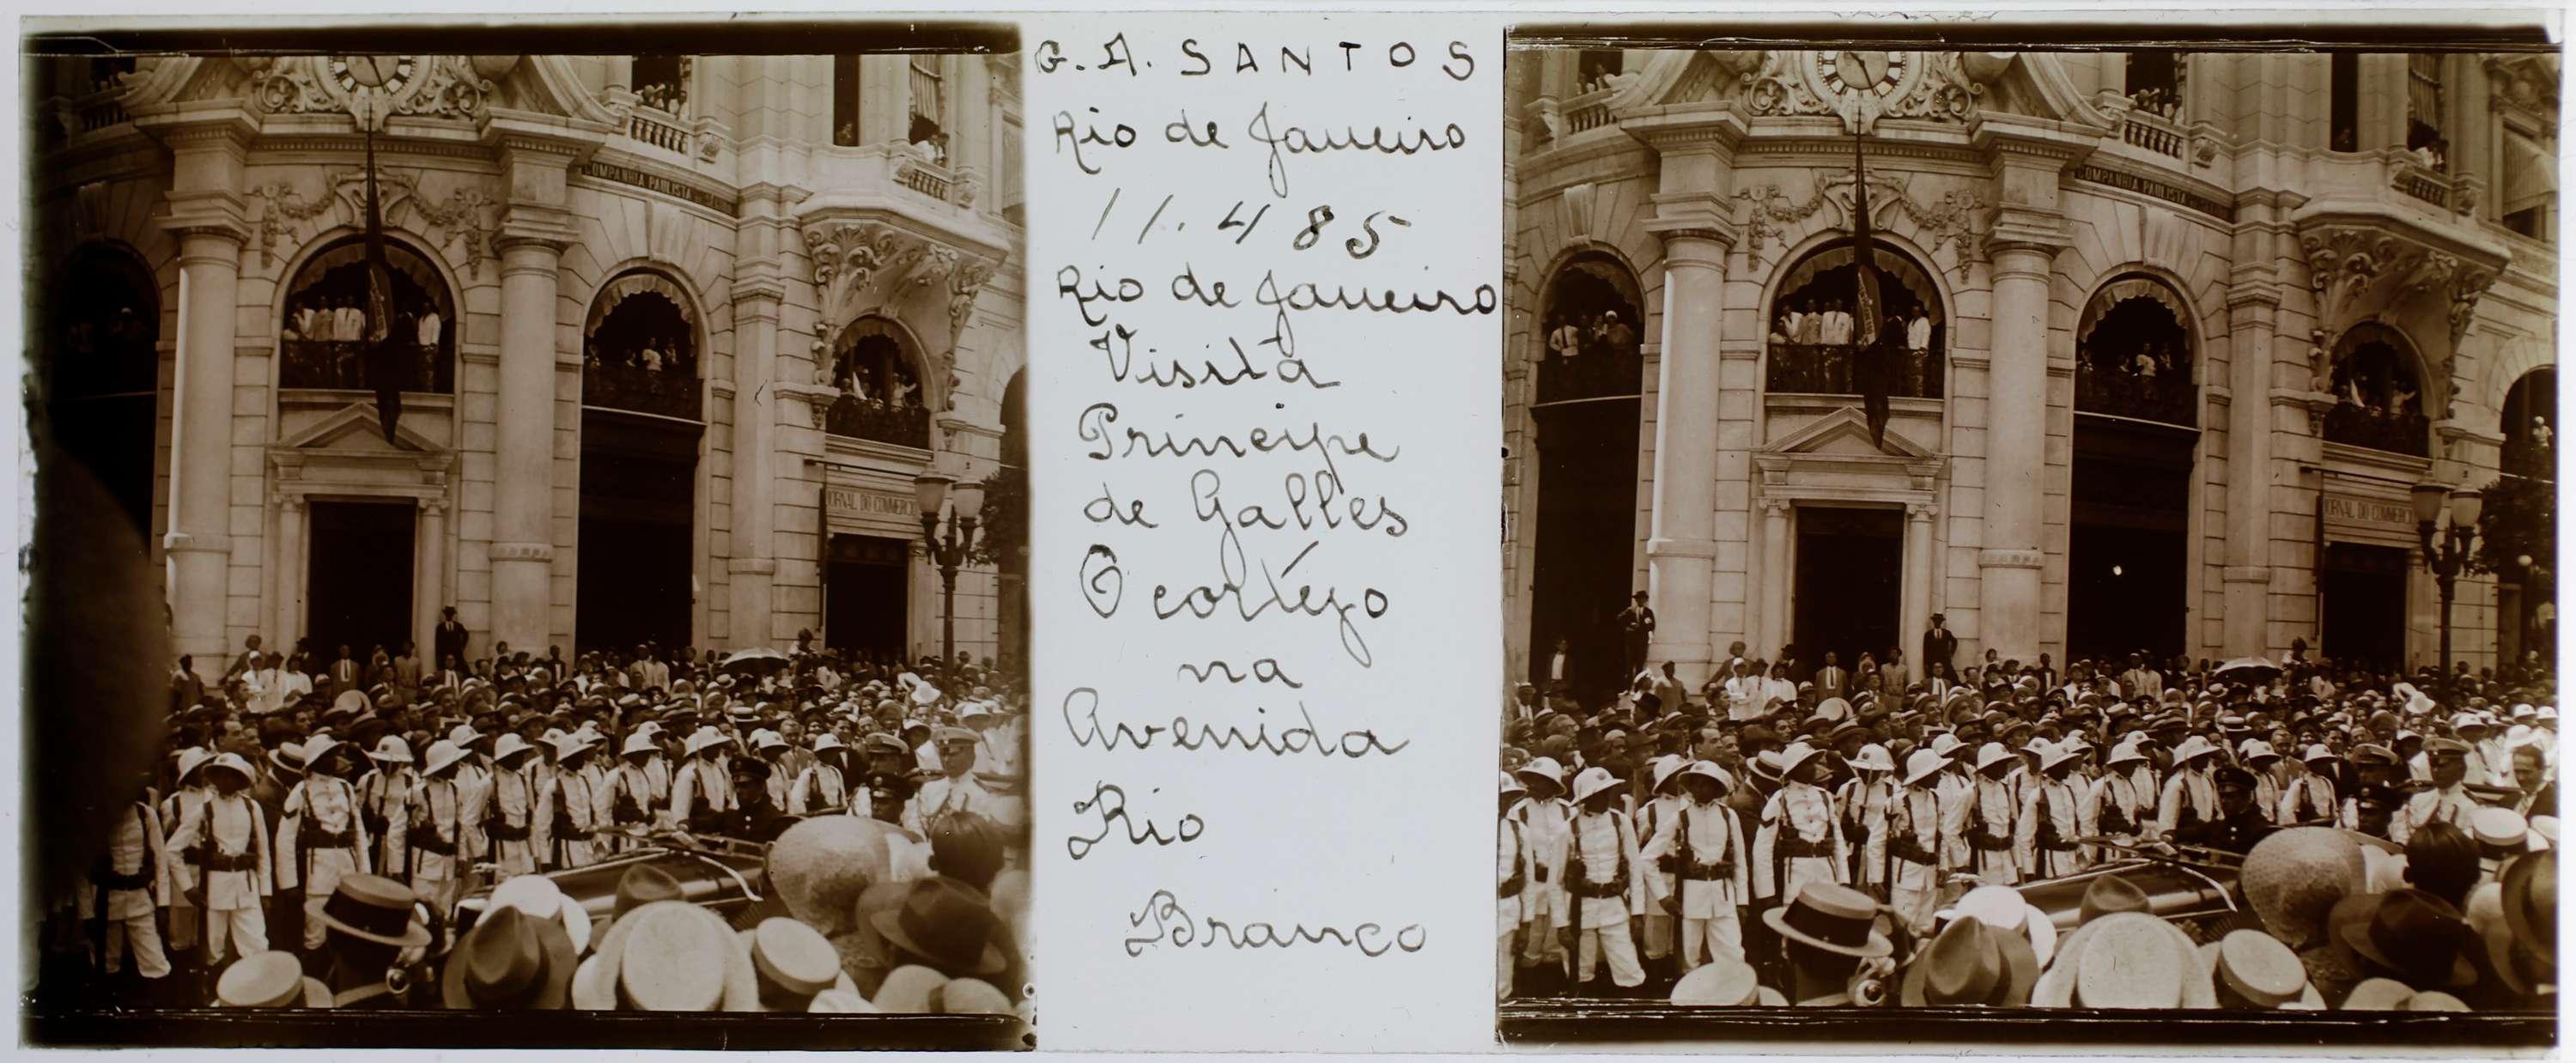 COMPANHIA PAULISTA
JORNAL DO COMMERCIO
G. A. SANTOS
Rio de Janeiro
11.485
Rio de Janeiro
Visita
Principe
de Galles
O cortejo
na
Avenida
Rio
Branco
COMPANHIA PAULISTA
JORNAL DO COMMERCIO